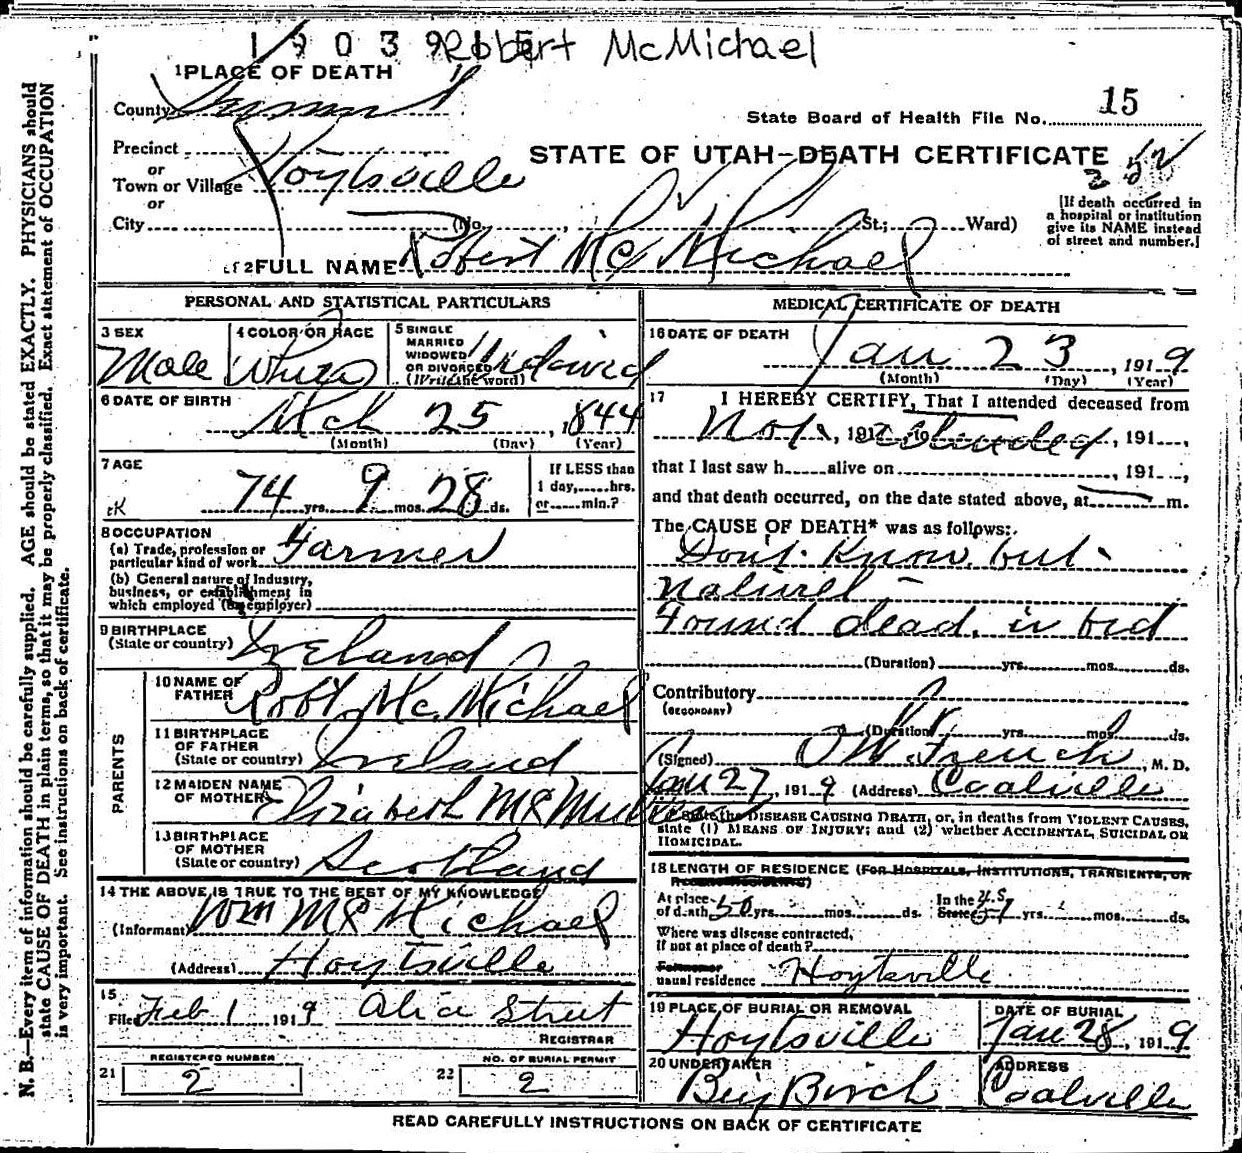 1903915 Robert McMichael
1 PLACE OF DEATH
County Summit
State Board of Health File No. 15
Precinct
or
Town or Village Hoytsville
or
City (No. , St.; Ward)
STATE OF UTAH—DEATH CERTIFICATE
[If death occurred in
a hospital or institution
give its NAME instead
of street and number.]
2 FULL NAME Robert Mc Michael
PERSONAL AND STATISTICAL PARTICULARS
3 SEX Male
4 COLOR OR RACE White
5 SINGLE
MARRIED
WIDOWED
OR DIVORCED
(Write the word)
6 DATE OF BIRTH
Mch 25, 1844
(Month) (Day) (Year)
7 AGE
74 yrs. 9 mos. 28 ds.
If LESS than
1 day, hrs.
or min.?
8 OCCUPATION
(a) Trade, profession or
particular kind of work Farmer
(b) General nature of Industry,
business, or establishment in
which employed (or employer)
9 BIRTHPLACE
(State or country) Ireland
PARENTS
10 NAME OF
FATHER Robt. Mc. Michael
11 BIRTHPLACE
OF FATHER
(State or country) Ireland
12 MAIDEN NAME
OF MOTHER Elizabeth
13 BIRTHPLACE
OF MOTHER
(State or country) Scotland
14 THE ABOVE IS TRUE TO THE BEST OF MY KNOWLEDGE
(Informant) Wm Mc Michael
(Address) Hoytsville
15
Filed Feb 1 1919
REGISTRAR
REGISTERED NUMBER
21 2
NO. OF BURIAL PERMIT
22 2
MEDICAL CERTIFICATE OF DEATH
16 DATE OF DEATH
Jan 23, 1919
(Month) (Day) (Year)
17 I HEREBY CERTIFY, That I attended deceased from
Not, 191 , to attended, 191 ,
that I last saw h alive on , 191 ,
and that death occurred, on the date stated above, at m.
The CAUSE OF DEATH* was as follows:
Don't Know, but
Found dead in bed
(Duration) yrs. mos. ds.
Contributory
(SECONDARY)
(Duration) yrs. mos. ds.
(Signed) French, M. D.
Jan 27, 1919 (Address) Coalville
*State the DISEASE CAUSING DEATH, or, in deaths from VIOLENT CAUSES,
state (1) MEANS OF INJURY; and (2) whether ACCIDENTAL, SUICIDAL OR
HOMICIDAL.
18 LENGTH OF RESIDENCE (FOR HOSPITALS, INSTITUTIONS, TRANSIENTS, OR
RECENT RESIDENTS)
At place
of death 50 yrs. mos. ds.
In the U.S.
State yrs. mos. ds.
Where was disease contracted,
if not at place of death?
Former or
usual residence Hoytsville
19 PLACE OF BURIAL OR REMOVAL
Hoytsville
DATE OF BURIAL
Jan 28, 1919
20 UNDERTAKER
Birch
ADDRESS
Coalville
READ CAREFULLY INSTRUCTIONS ON BACK OF CERTIFICATE
N. B.—Every item of information should be carefully supplied. AGE should be stated EXACTLY. PHYSICIANS should
state CAUSE OF DEATH in plain terms, so that it may be properly classified. Exact statement of OCCUPATION
is very important. See instructions on back of certificate.